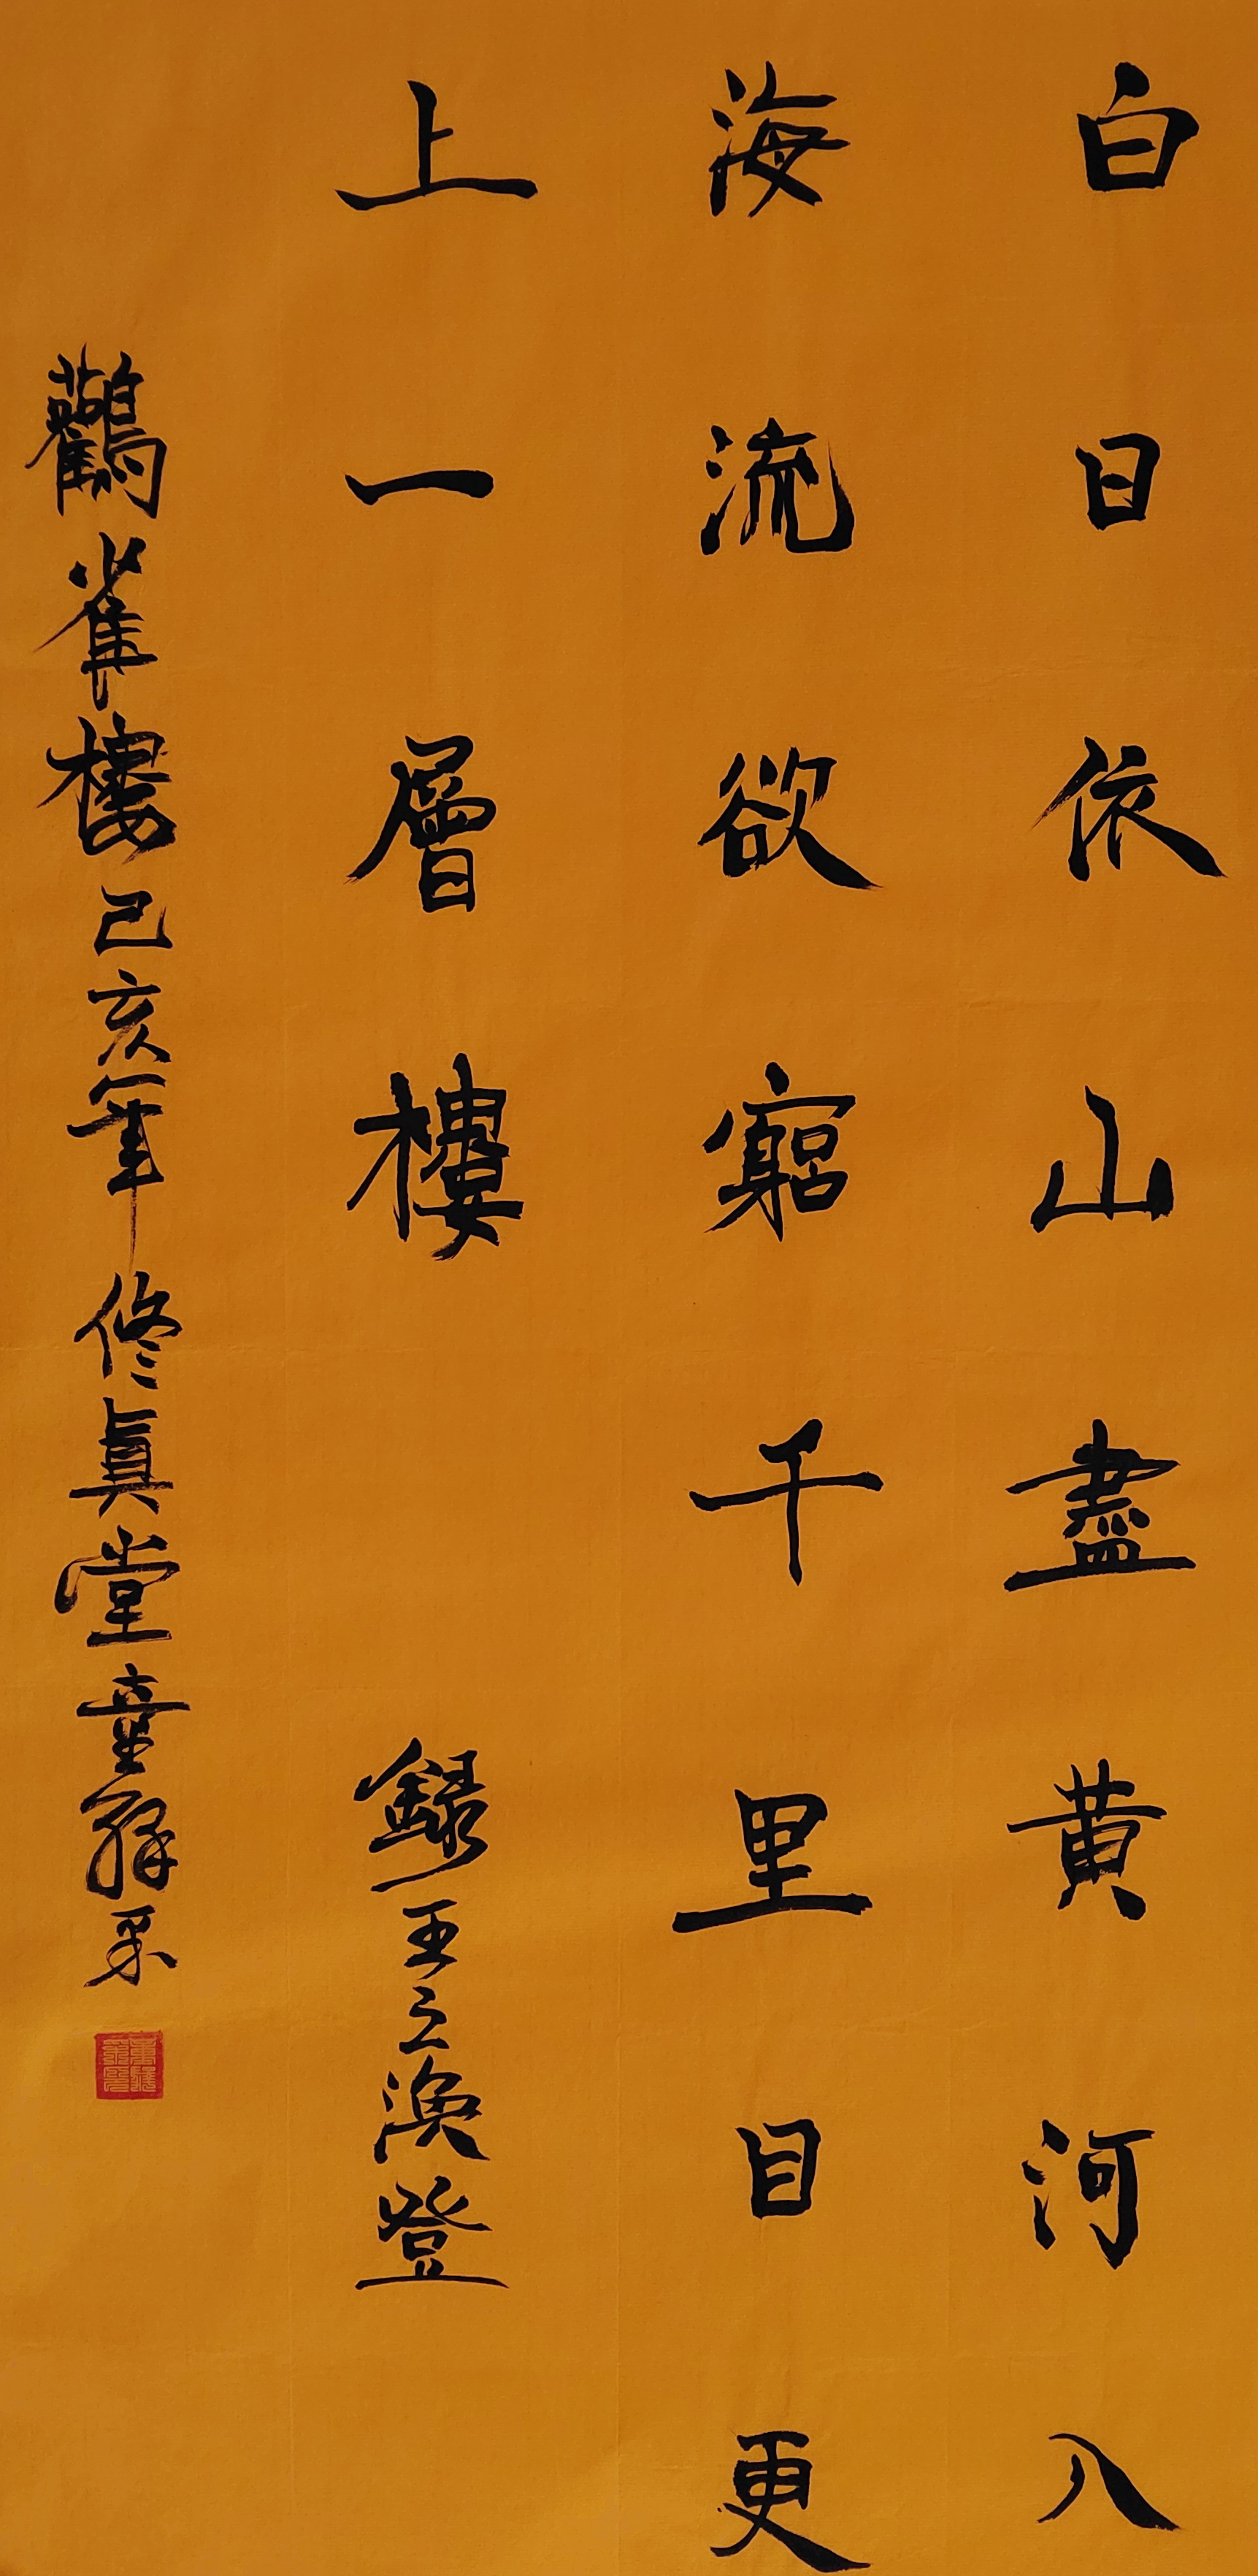 白日依山盡黄河入
海流欲窮千里目更
上一層樓
錄王之渙登
鸛雀樓己亥年修眞堂童釋采